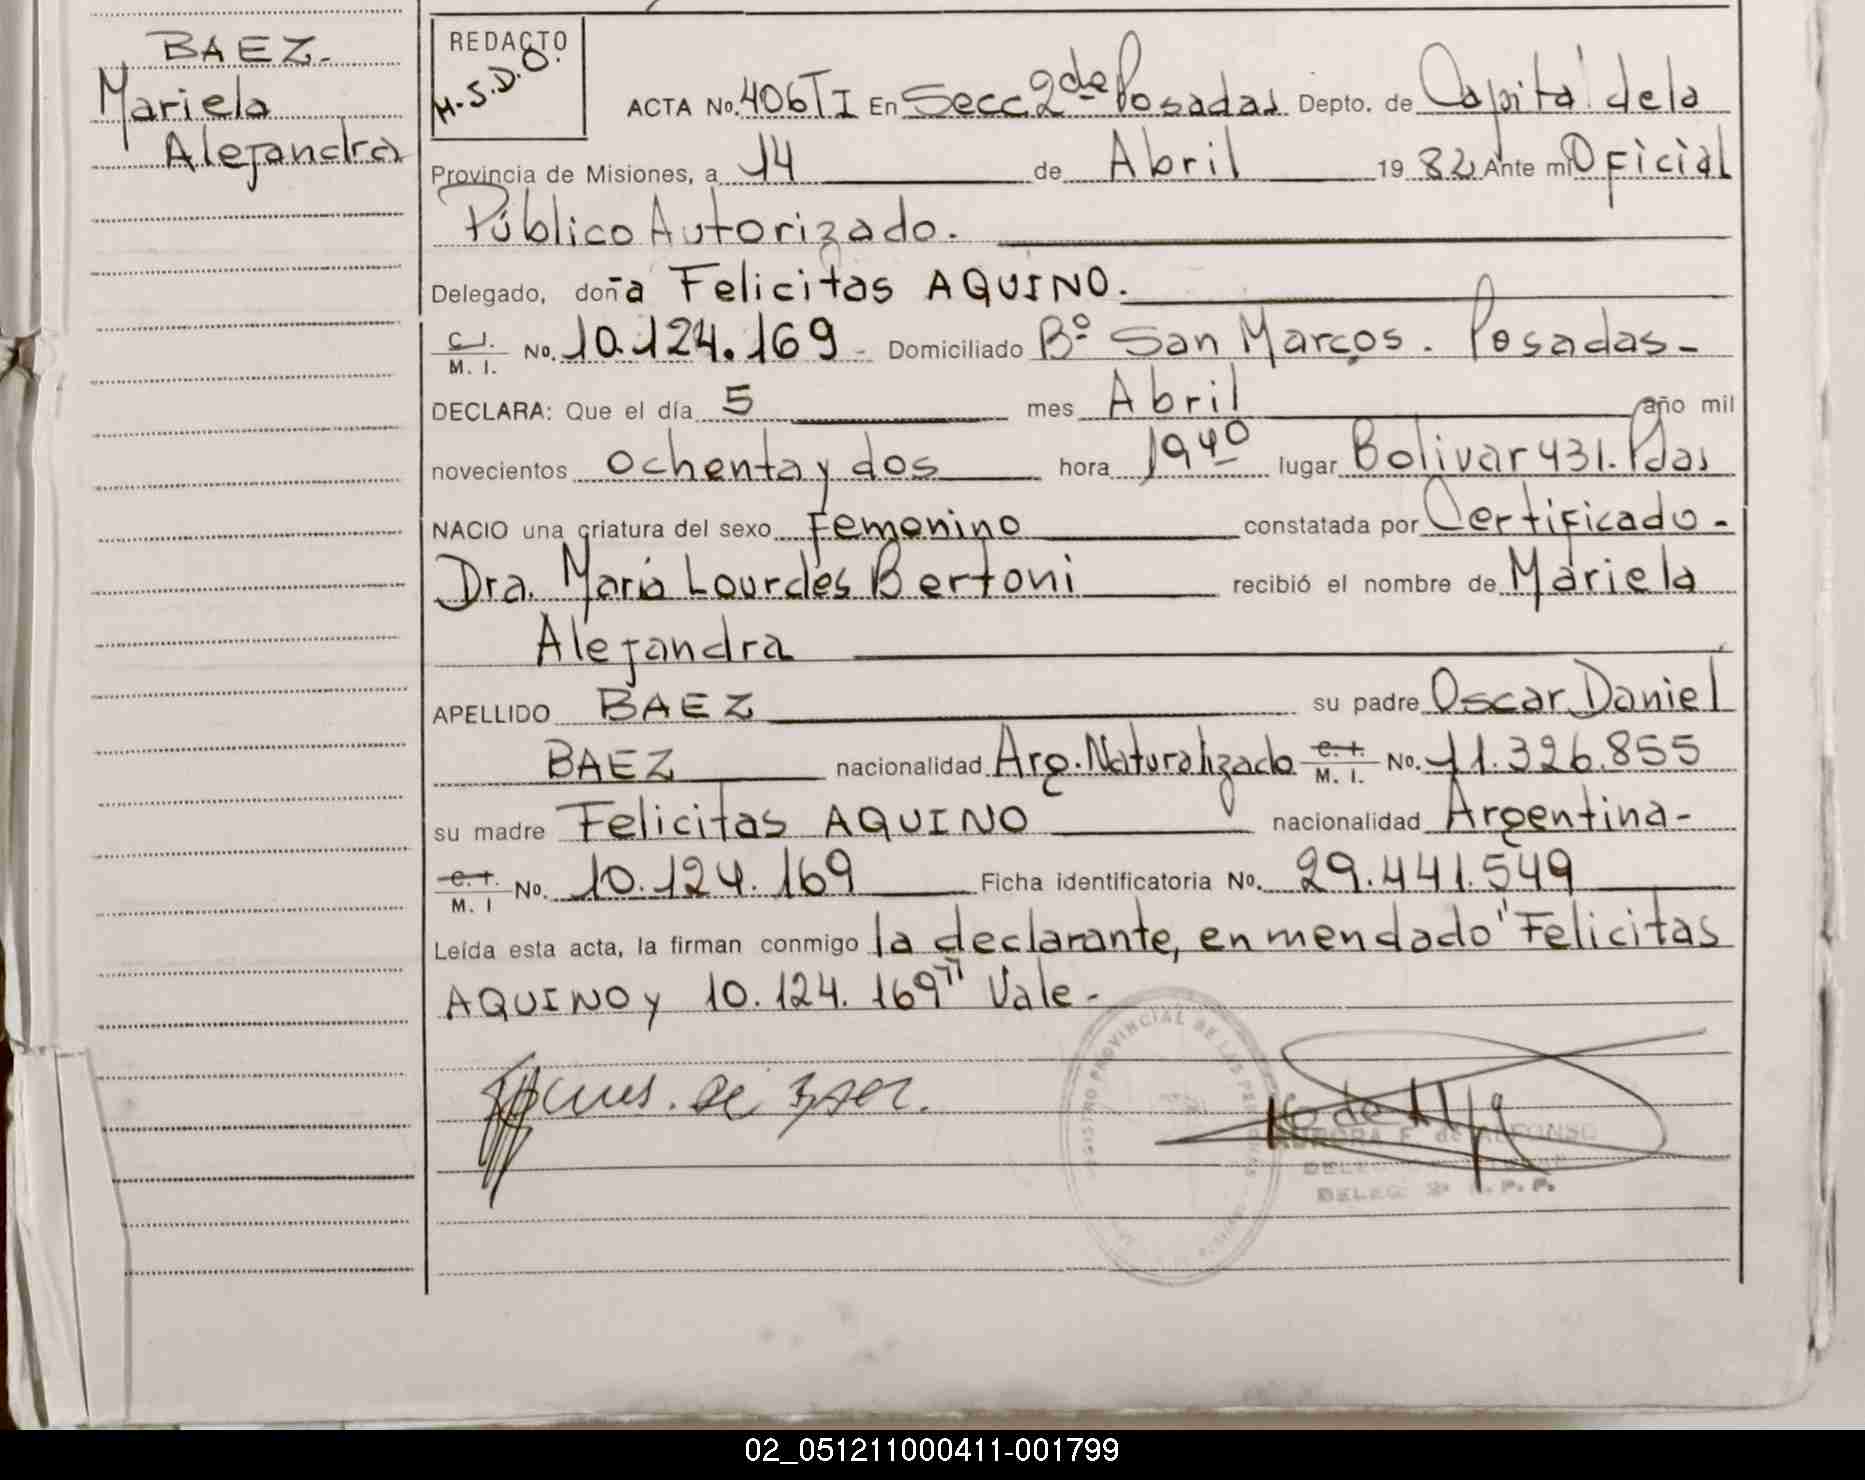 BAEZ-
Mariela
Alejandra
REDACTO
H.S.D.O.
ACTA No. 406 T I En Secc. 2da Posadas Depto. de Capital de la
Provincia de Misiones, a 14 de Abril 1982 Ante mi Oficial
Público Autorizado.
Delegado, doña Felicitas AQUINO.
C.I. / M. I. No. 10.124.169 - Domiciliado Bº San Marcos. Posadas-
DECLARA: Que el día 5 mes Abril año mil
novecientos ochenta y dos hora 19 40 lugar Bolivar 431. Pdas
NACIO una criatura del sexo Femenino constatada por Certificado-
Dra. María Lourdes Bertoni recibió el nombre de Mariela
Alejandra
APELLIDO BAEZ su padre Oscar Daniel
BAEZ nacionalidad Arg. Naturalizado C. I. / M. I. No. 11.326.855
su madre Felicitas AQUINO nacionalidad Argentina-
C. I. / M. I No. 10.124.169 Ficha identificatoria No. 29.441.549
Leída esta acta, la firman conmigo la declarante, enmendado "Felicitas
AQUINO y 10.124.169" Vale-
REGISTRO PROVINCIAL DE LAS PERSONAS
de Baez.
AURORA F. de ALFONSO
02_051211000411-001799